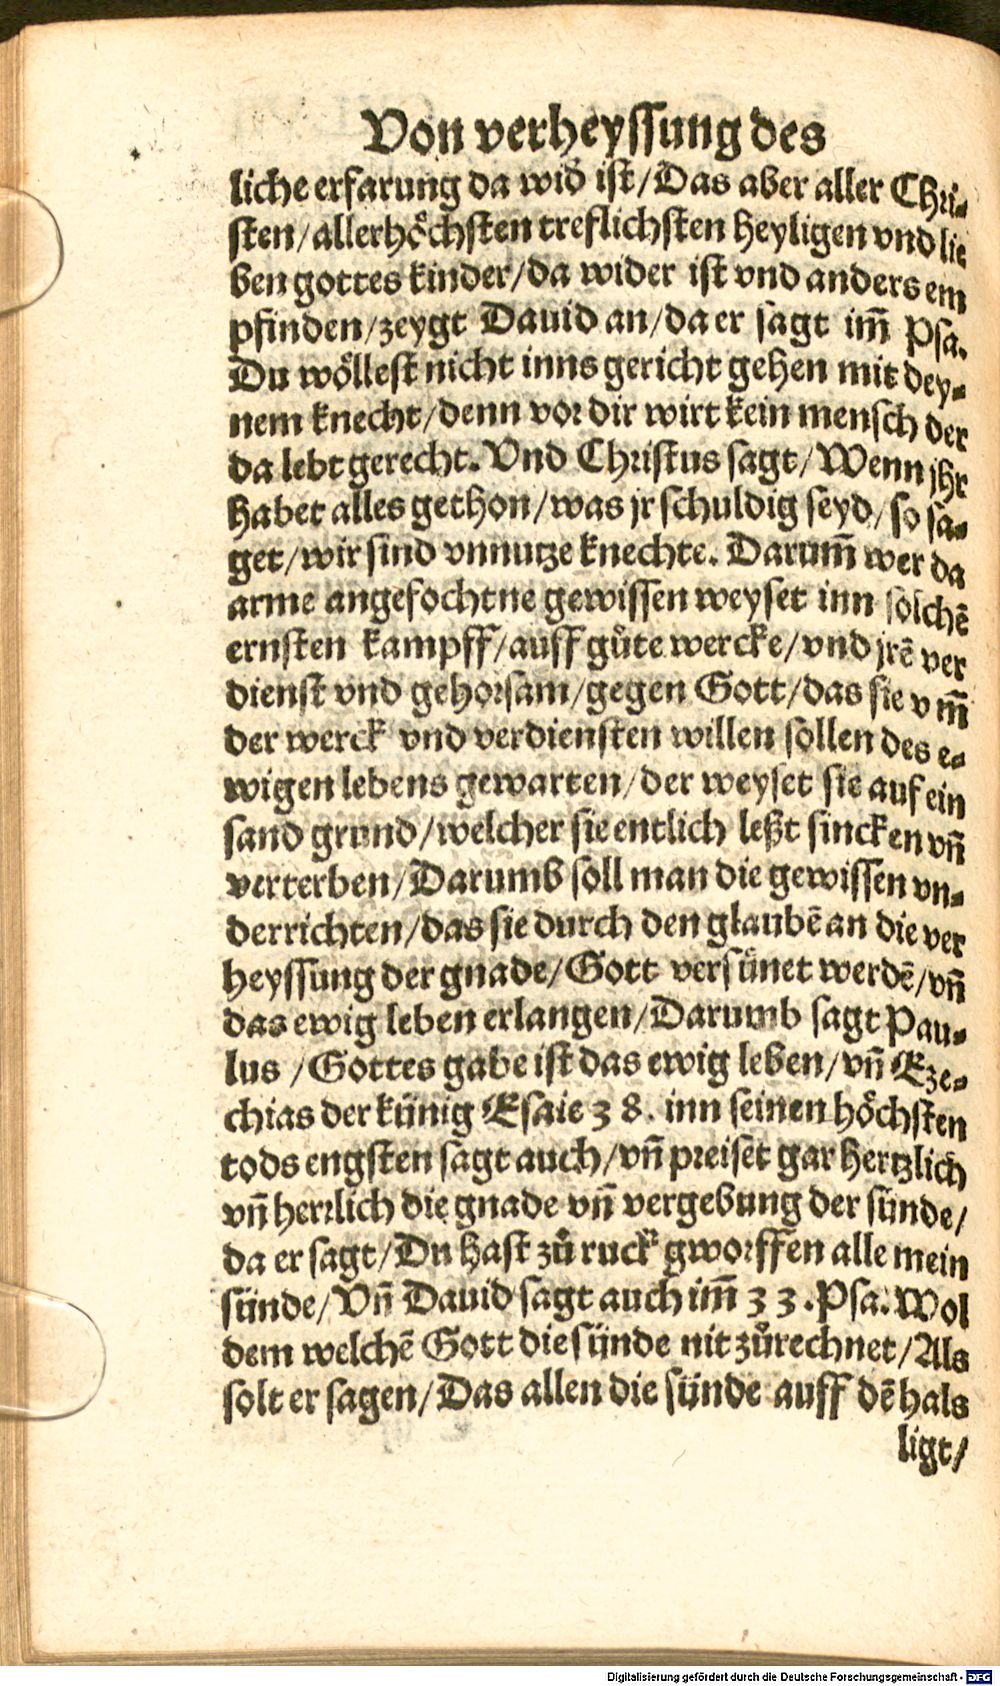 Von verheyssung des
liche erfarung da wid̕ ist/Das aber aller Chri-
sten/allerhoͤchsten treflichsten heyligen vnd lie
ben gottes kinder/da wider ist vnd anders em
pfinden/zeygt Dauid an/da er sagt im̄ Psa.
Du woͤllest nicht inns gericht gehen mit dey-
nem knecht/denn vor dir wirt kein mensch der
da lebt gerecht. Vnd Christus sagt/Wenn jhr
habet alles gethon/was jr schuldig seyd/so sa-
get/wir sind vnnutze knechte. Darum̄ wer da
arme angefochtne gewissen weyset inn solchē
ernsten kampff/auff guͤte wercke/vnd jrē ver
dienst vnd gehorsam/gegen Gott/das sie vm̄
der werck vnd verdiensten willen sollen des e-
wigen lebens gewarten/der weyset sie auf ein
sand grund/welcher sie entlich leßt sincken vn̄
verterben/Darumb soll man die gewissen vn-
derrichten/das sie durch den glaubē an die ver
heyssung der gnade/Gott versuͤnet werdē/vn̄
das ewig leben erlangen/Darumb sagt Pau-
lus /Gottes gabe ist das ewig leben/vn̄ Eze-
chias der kuͤnig Esaie 3 8. inn seinen hoͤchsten
tods engsten sagt auch/vn̄ preiset gar hertzlich
vn̄ herrlich die gnade vn̄ vergebung der suͤnde/
da er sagt/Du hast zuͦ ruck gworffen alle mein
suͤnde/Vn̄ Dauid sagt auch im̄ 3 3. Psa. Wol
dem welchē Gott die suͤnde nit zuͦrechnet/Als
solt er sagen/Das allen die suͤnde auff dē hals
ligt/
Digitalisierung gefördert durch die Deutsche Forschungsgemeinschaft - DFG